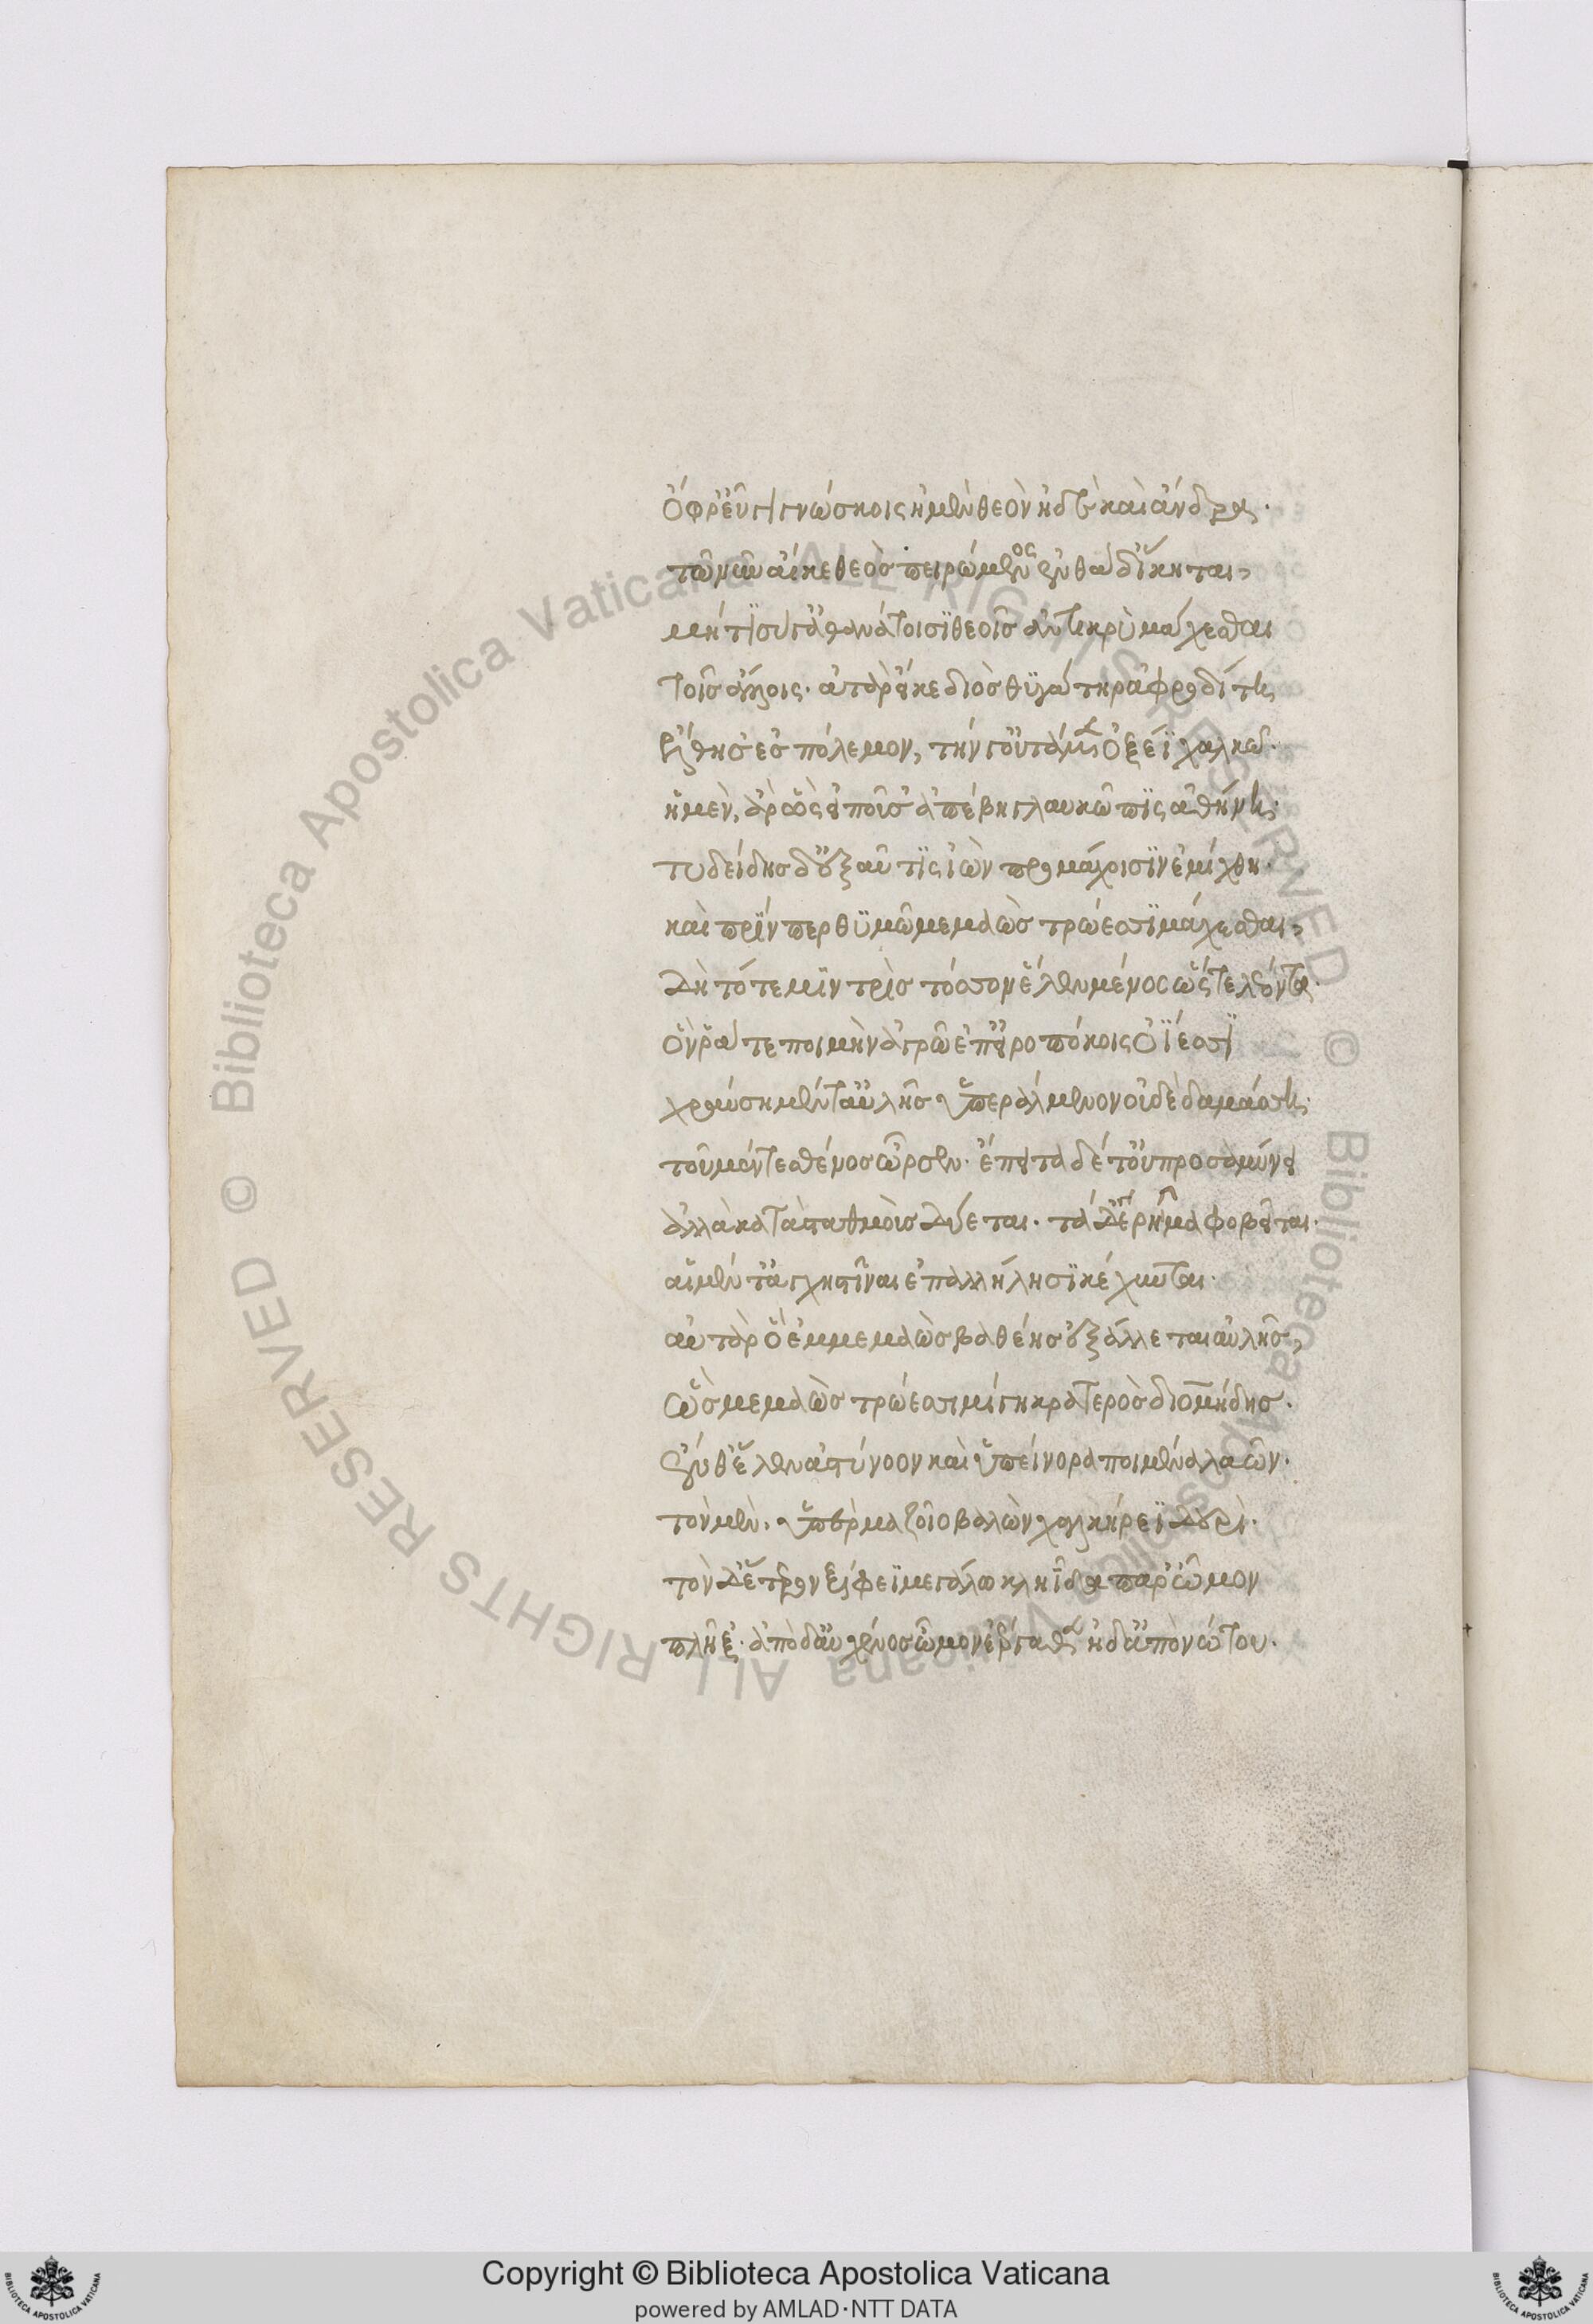 ὄφρ' εὖ γιγνώσκοις ἠμὲν θεὸν ἠδὲ καὶ ἄνδρα.
τῶ νῦν αἴ κε θεὸς πειρώμενος ἐνθάδ' ἵκηται,
μήτι σύ γ' ἀθανάτοισι θεοῖς ἀντικρὺ μάχεσθαι
τοῖς ἄλλοις. ἀτὰρ εἴ κε διὸς θυγάτηρ ἀφροδίτη
ἔλθησ' ἐς πόλεμον, τήν γ' οὐτάμεν ὀξέϊ χαλκῶ.
ἡ μὲν, ἄρ' ὣς εἰποῦσ' ἀπέβη γλαυκῶπις ἀθήνη.
τυδείδης δ' ἐξ αῦτις ἰὼν προμάχοισιν ἐμίχθη.
καὶ πρίν περ θυμῶ μεμαὼς τρώεσσι μάχεσθαι,
δὴ τότε μιν τρὶς τόσσον ἕλεν μένος ὥς τε λέοντα.
ὅν ῥά τε ποιμὴν ἀγρῶ ἐπ' εἰροπόκοις ὀΐεσσι
χραύση μέν τ' αὐλῆς ὑπεράλμενον οὐδὲ δαμάσση.
τοῦ μέν τε σθένος ὦρσεν. ἔπειτα δέ τ' οὐ προσαμύνει
ἀλλὰ κατὰ σταθμοὺς δύεται. τὰ δ' ἐρῆμα φοβεῖται.
αἱ μέν τ' ἀγχηστῖναι ἐπ' ἀλλήλησι κέχυνται.
αὐτὰρ ὁ ἐμμεμαὼς βαθέης ἐξάλλεται αὐλῆς,
ὣς μεμαὼς τρώεσσι μίγη κρατερὸς διομήδης.
ἔνθ' ἕλεν ἀστύνοον καὶ ὑπείνορα ποιμένα λαῶν.
τὸν μὲν, ὑπὲρ μαζοῖο βαλὼν χαλκήρεϊ δουρὶ.
τὸν δ' ἕτερον ξίφεϊ μεγάλω κληῖδα παρ' ὦμον
πλῆξ'. ἀπὸ δ' αὐχένος ὦμον ἐέργαθεν ἠδ' ἀπὸ νώτου.
© Biblioteca Apostolica Vaticana ALL RIGHTS RESERVED © Biblioteca Apostolica Vaticana ALL RIGHTS RESERVED
Copyright © Biblioteca Apostolica Vaticana
powered by AMLAD·NTT DATA
BIBLIOTECA APOSTOLICA VATICANA
BIBLIOTECA APOSTOLICA VATICANA